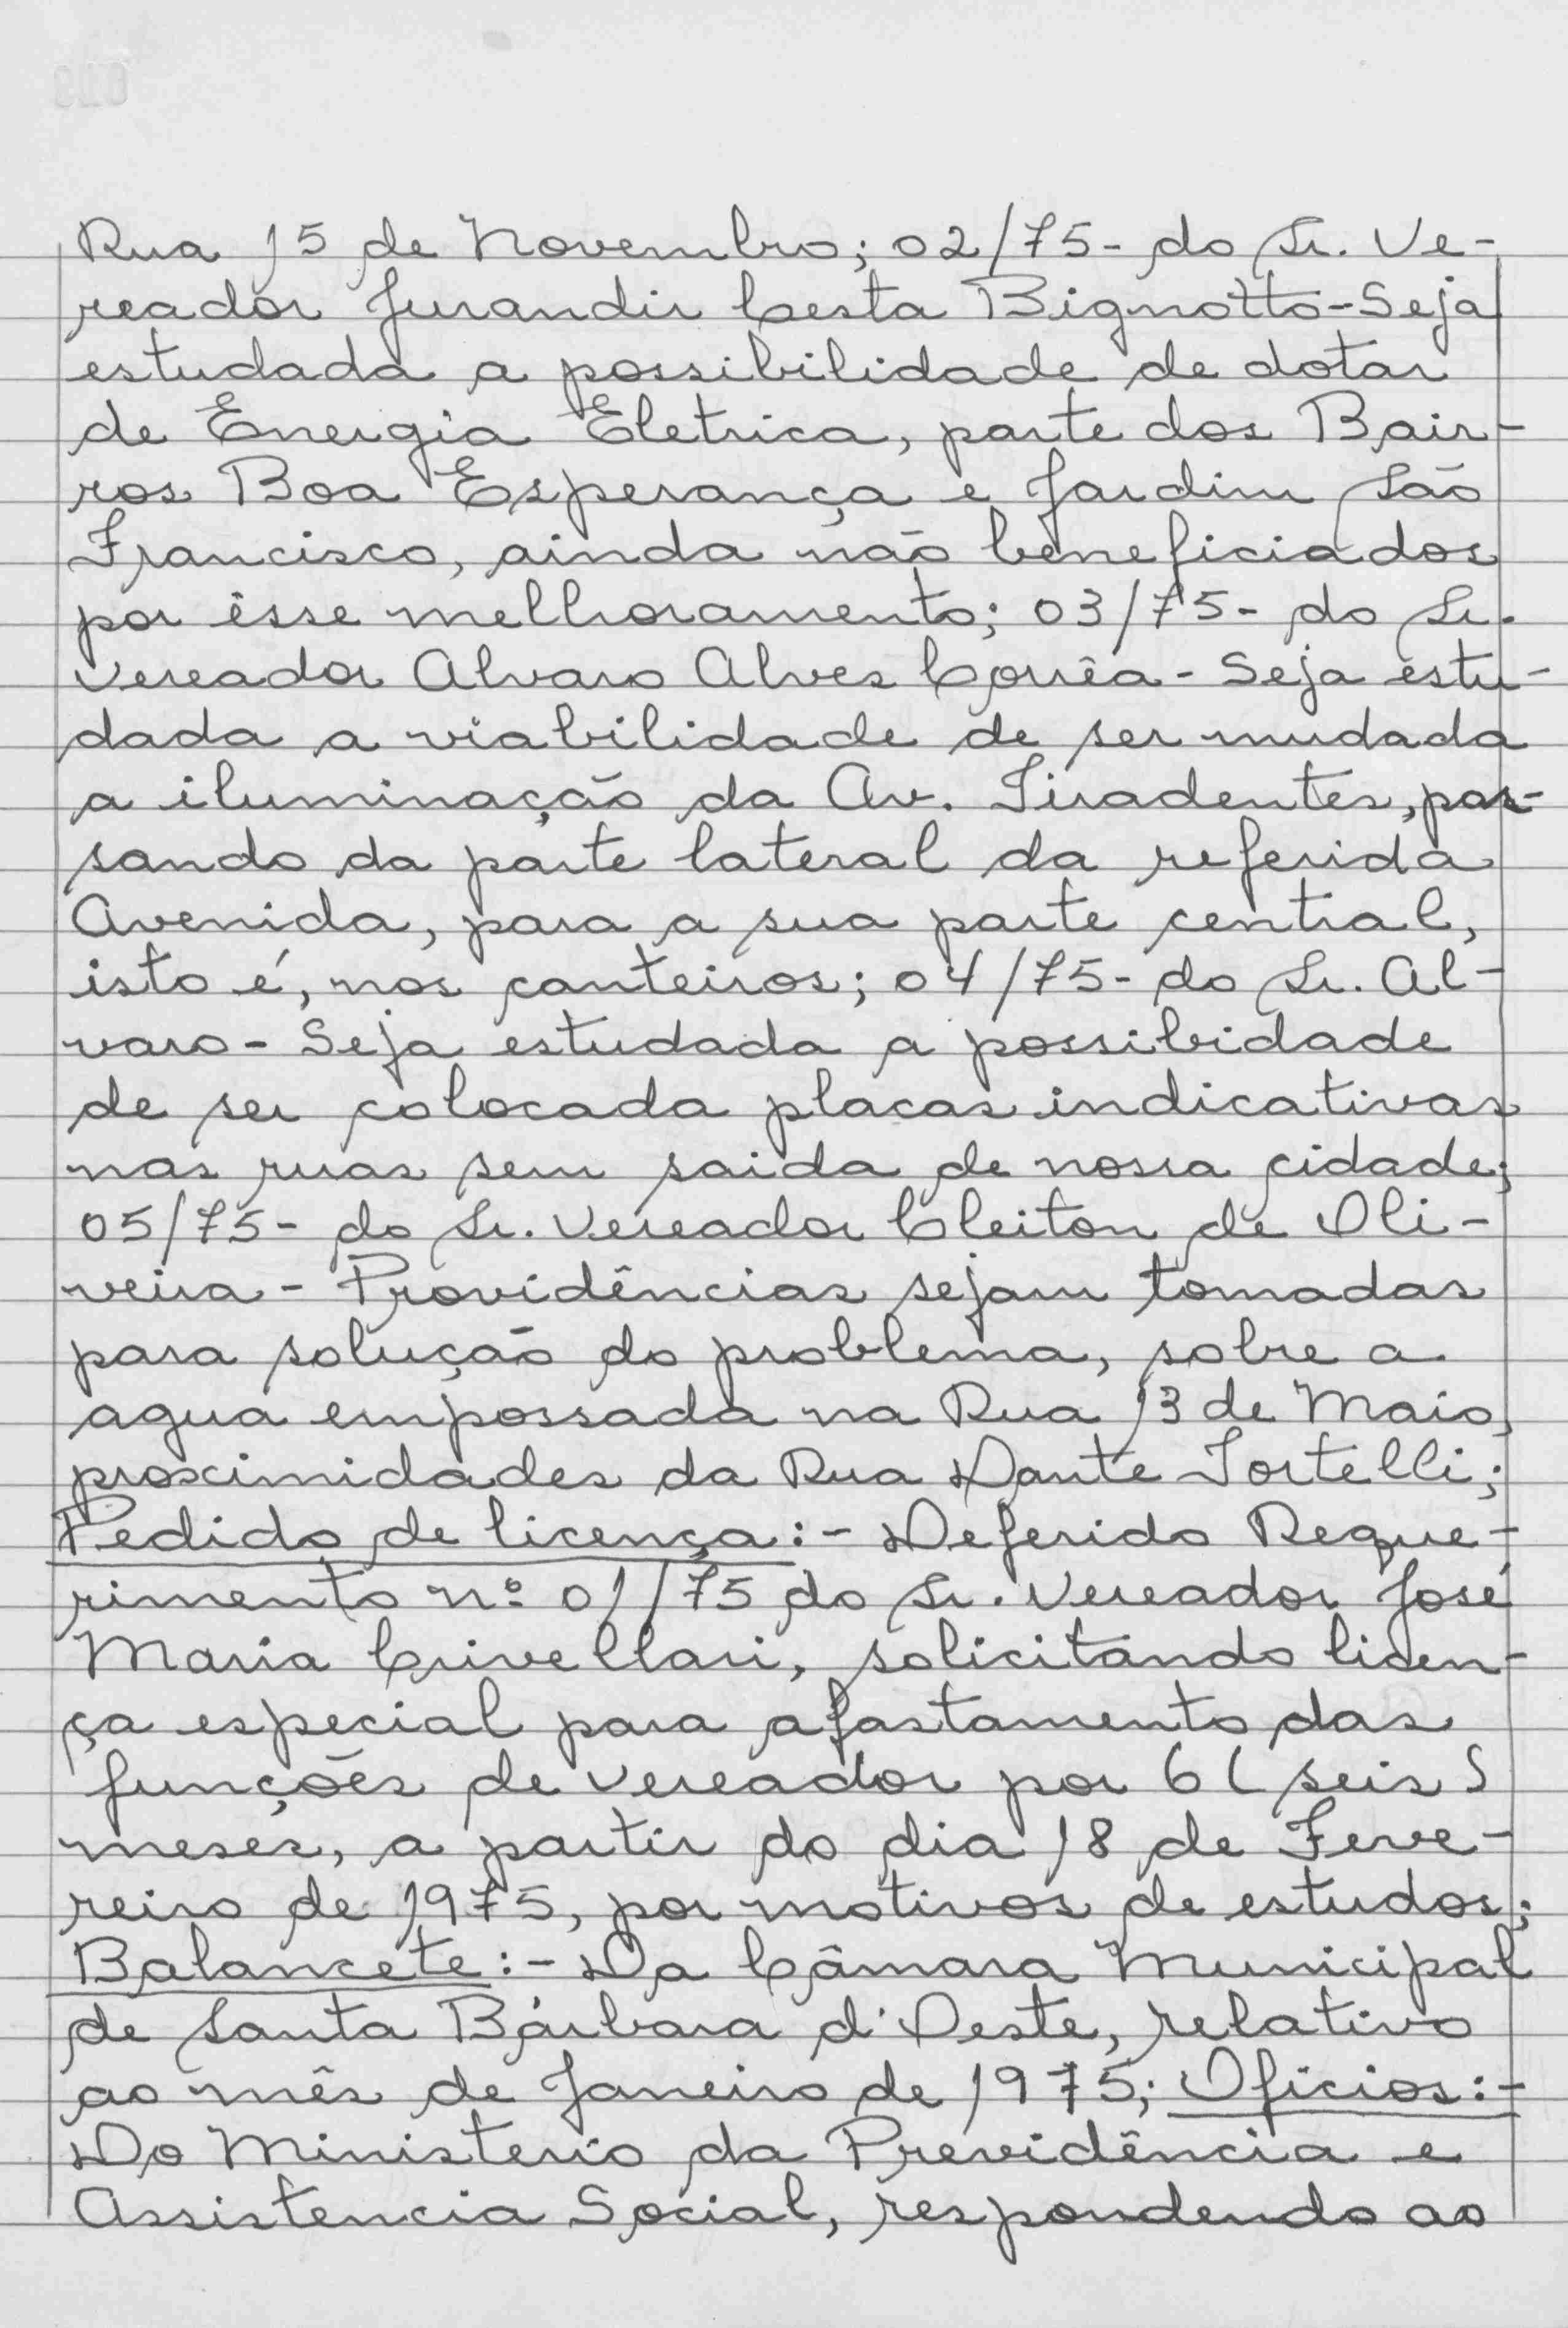 Rua 15 de Novembro; 02/75- do Sr. Ve-
reador Jurandir Cesta Bignotto-Seja
estudada a possibilidade de dotar
de Energia Eletrica, parte dos Bair-
ros Boa Esperança e Jardim São
Francisco, ainda não beneficiados
por êsse melhoramento; 03/75- do Sr.
Vereador Alvaro Alves Corrêa- Seja estu-
dada a viabilidade de ser mudada
a iluminação da Av. Tiradentes, pas-
sando da parte lateral da referida
Avenida, para a sua parte central,
isto é, nos canteiros; 04/75- do Sr. Al-
varo- Seja estudada a possibidade
de ser colocada placas indicativas
nas ruas sem saida de nossa cidade;
05/75- do Sr. Vereador Cleiton de Oli-
veira- Providências sejam tomadas
para solução do problema, sobre a
agua empossada na Rua 13 de Maio,
proximidades da Rua Dante Tortelli;
Pedido de licença:- Deferido Reque-
rimento nº 01/75 do Sr. Vereador José
Maria Crivellari, solicitando licen-
ça especial para afastamento das
funções de Vereador por 6 (seis)
meses, a partir do dia 18 de Feve-
reiro de 1975, por motivos de estudos;
Balancete:- Da Câmara Municipal
de Santa Bárbara d'Oeste, relativo
ao mês de Janeiro de 1975; Oficios:-
Do Ministerio da Previdência e
Assistencia Social, respondendo ao